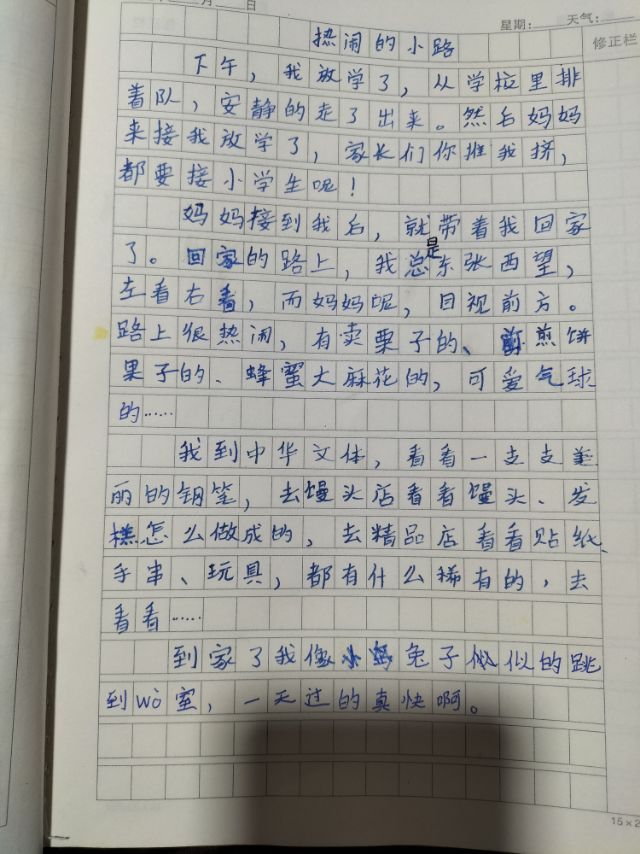 月 日
星期: 天气:
修正栏
热闹的小路
下午，我放学了，从学校里排
着队，安静的走了出来。然后妈妈
来接我放学了，家长们你推我挤，
都要接小学生呢！
妈妈接到我后，就带着我回家
了。回家的路上，我总是东张西望，
左看右看，而妈妈呢，目视前方。
路上很热闹，有卖栗子的、煎饼
果子的、蜂蜜大麻花的，可爱气球
的……
我到中华文体，看看一支支美
丽的钢笔，去馒头店看看馒头、发
糕怎么做成的，去精品店看看贴纸、
手串、玩具，都有什么稀有的，去
看看……
到家了我像兔子似的跳
到wò室，一天过的真快啊。